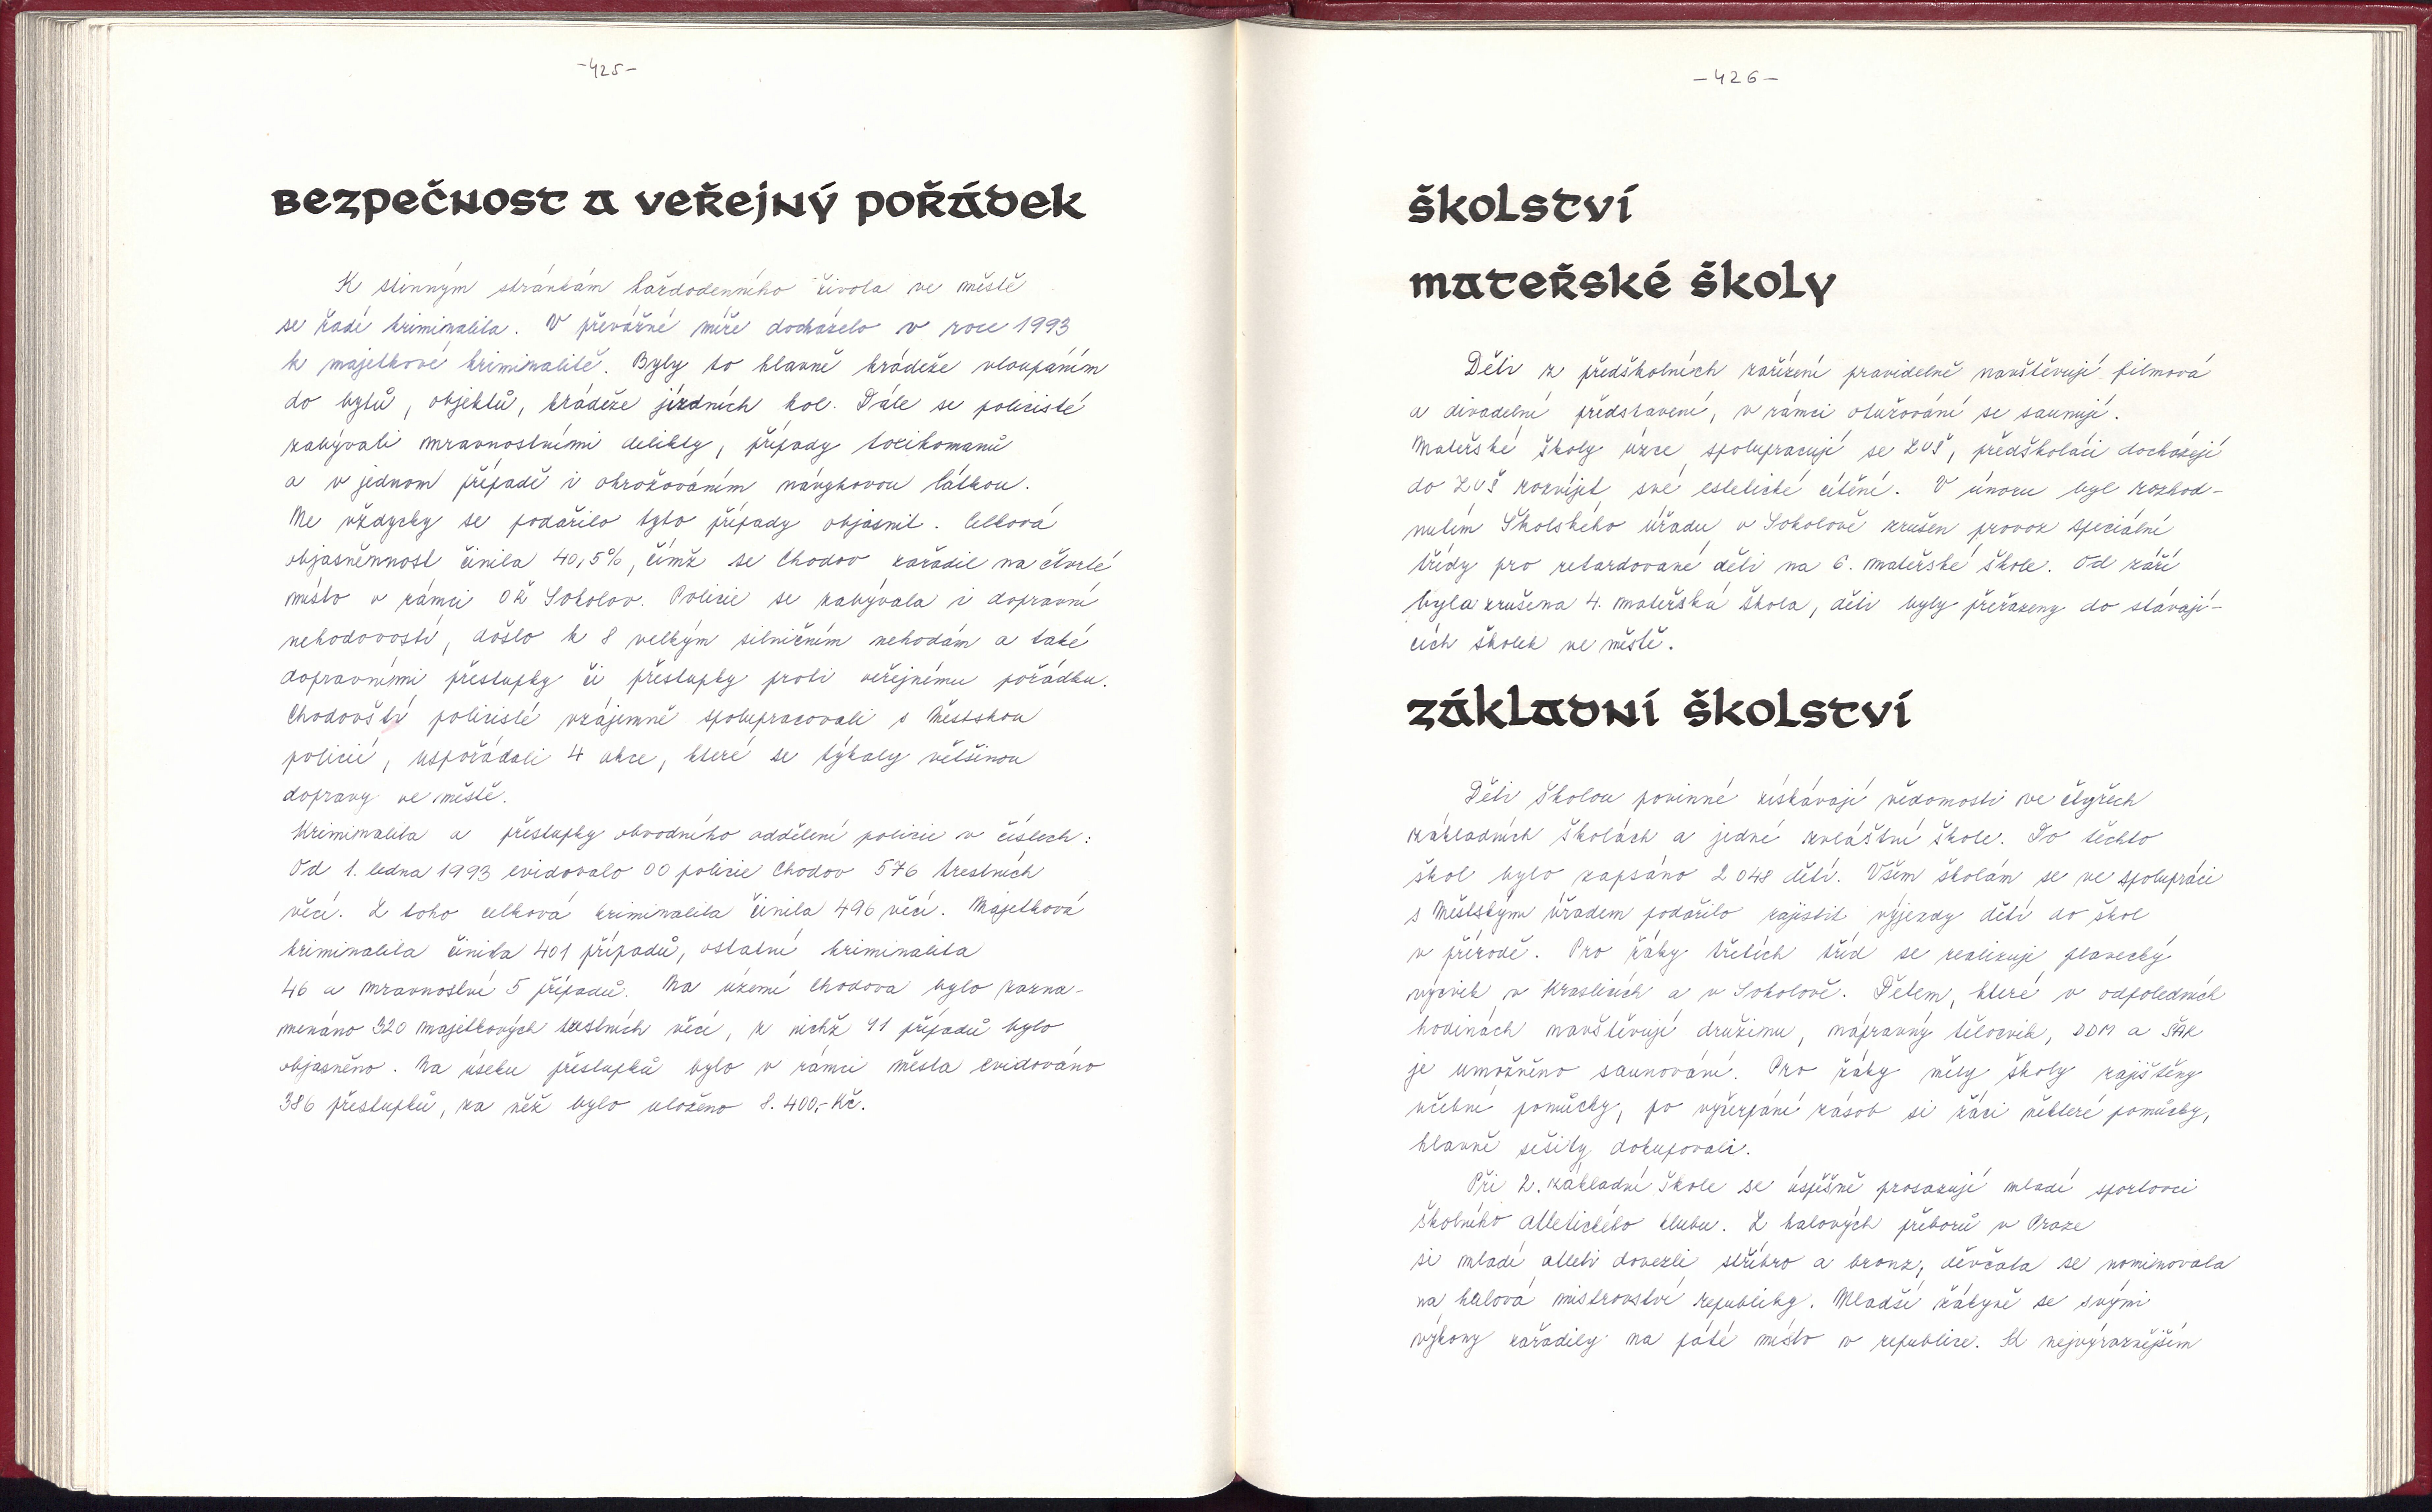 -425-
Bezpečnost a veřejný pořádek
K stinným stránkám každodenního života ve městě
se řadí kriminalita. V převážné míře docházelo v roce 1993
k majetkové kriminalitě. Byly to hlavně krádeže vloupáním
do bytů, objektů, krádeže jízdních kol. Dále se policisté
zabývali mravnostními delikty, případy toxikomanů
a v jednom případě i ohrožováním návykovou látkou.
Ne vždycky se podařilo tyto případy objasnit. Celková
objasněnnost činila 40,5%, čímž se Chodov zařadil na čtvrté
místo v rámci OŘ Sokolov. Policie se zabývala i dopravní
nehodovostí, došlo k 8 velkým silničním nehodám a také
dopravními přestupky či přestupky proti veřejnému pořádku.
Chodovští policisté vzájemně spolupracovali s Městskou
policií, uspořádali 4 akce, které se týkaly většinou
dopravy ve městě.
Kriminalita a přestupky obvodního oddělení policie v číslech:
Od 1. ledna 1993 evidovalo OO policie Chodov 576 trestních
věcí. Z toho celková kriminalita činila 496 věcí. Majetková
kriminalita činila 401 případů, ostatní kriminalita
46 a mravnostní 5 případů. Na území Chodova bylo zazna-
menáno 320 majetkových trestních věcí, z nichž 91 případů bylo
objasněno. Na úseku přestupků bylo v rámci města evidováno
386 přestupků, za něž bylo uloženo 8.400,- Kč.
-426-
Školství
Mateřské školy
Děti z předškolních zařízení pravidelně navštěvují filmová
a divadelní představení, v rámci otužování se saunují.
Mateřské školy úzce spolupracují se ZUŠ, předškoláci docházejí
do ZUŠ rozvíjet své estetické cítění. V únoru byl rozhod-
nutím Školského úřadu v Sokolově zrušen provoz speciální
třídy pro retardované děti na 6. mateřské škole. Od září
byla zrušena 4. mateřská škola, děti byly přeřazeny do stávají-
cích školek ve městě.
Základní školství
Děti školou povinné získávají vědomosti ve čtyřech
základních školách a jedné zvláštní škole. Do těchto
škol bylo zapsáno 2 048 dětí. Všem školám se ve spolupráci
s Městským úřadem podařilo zajistit výjezdy dětí do škol
v přírodě. Pro žáky třetích tříd se realizuje plavecký
výcvik v Kraslicích a v Sokolově. Dětem, které v odpoledních
hodinách navštěvují družinu, nápravný tělocvik, DDM a ŠAK
je umožněno saunování. Pro žáky měly školy zajištěny
učební pomůcky, po vyčerpání zásob si žáci některé pomůcky,
hlavně sešity dokupovali.
Při 2. základní škole se úspěšně prosazují mladí sportovci
školního atletického klubu. Z halových přeborů v Praze
si mladí atleti dovezli stříbro a bronz, děvčata se nominovala
na halová mistrovství republiky. Mladší žákyně se svými
výkony zařadily na páté místo v republice. K nejvýraznějším